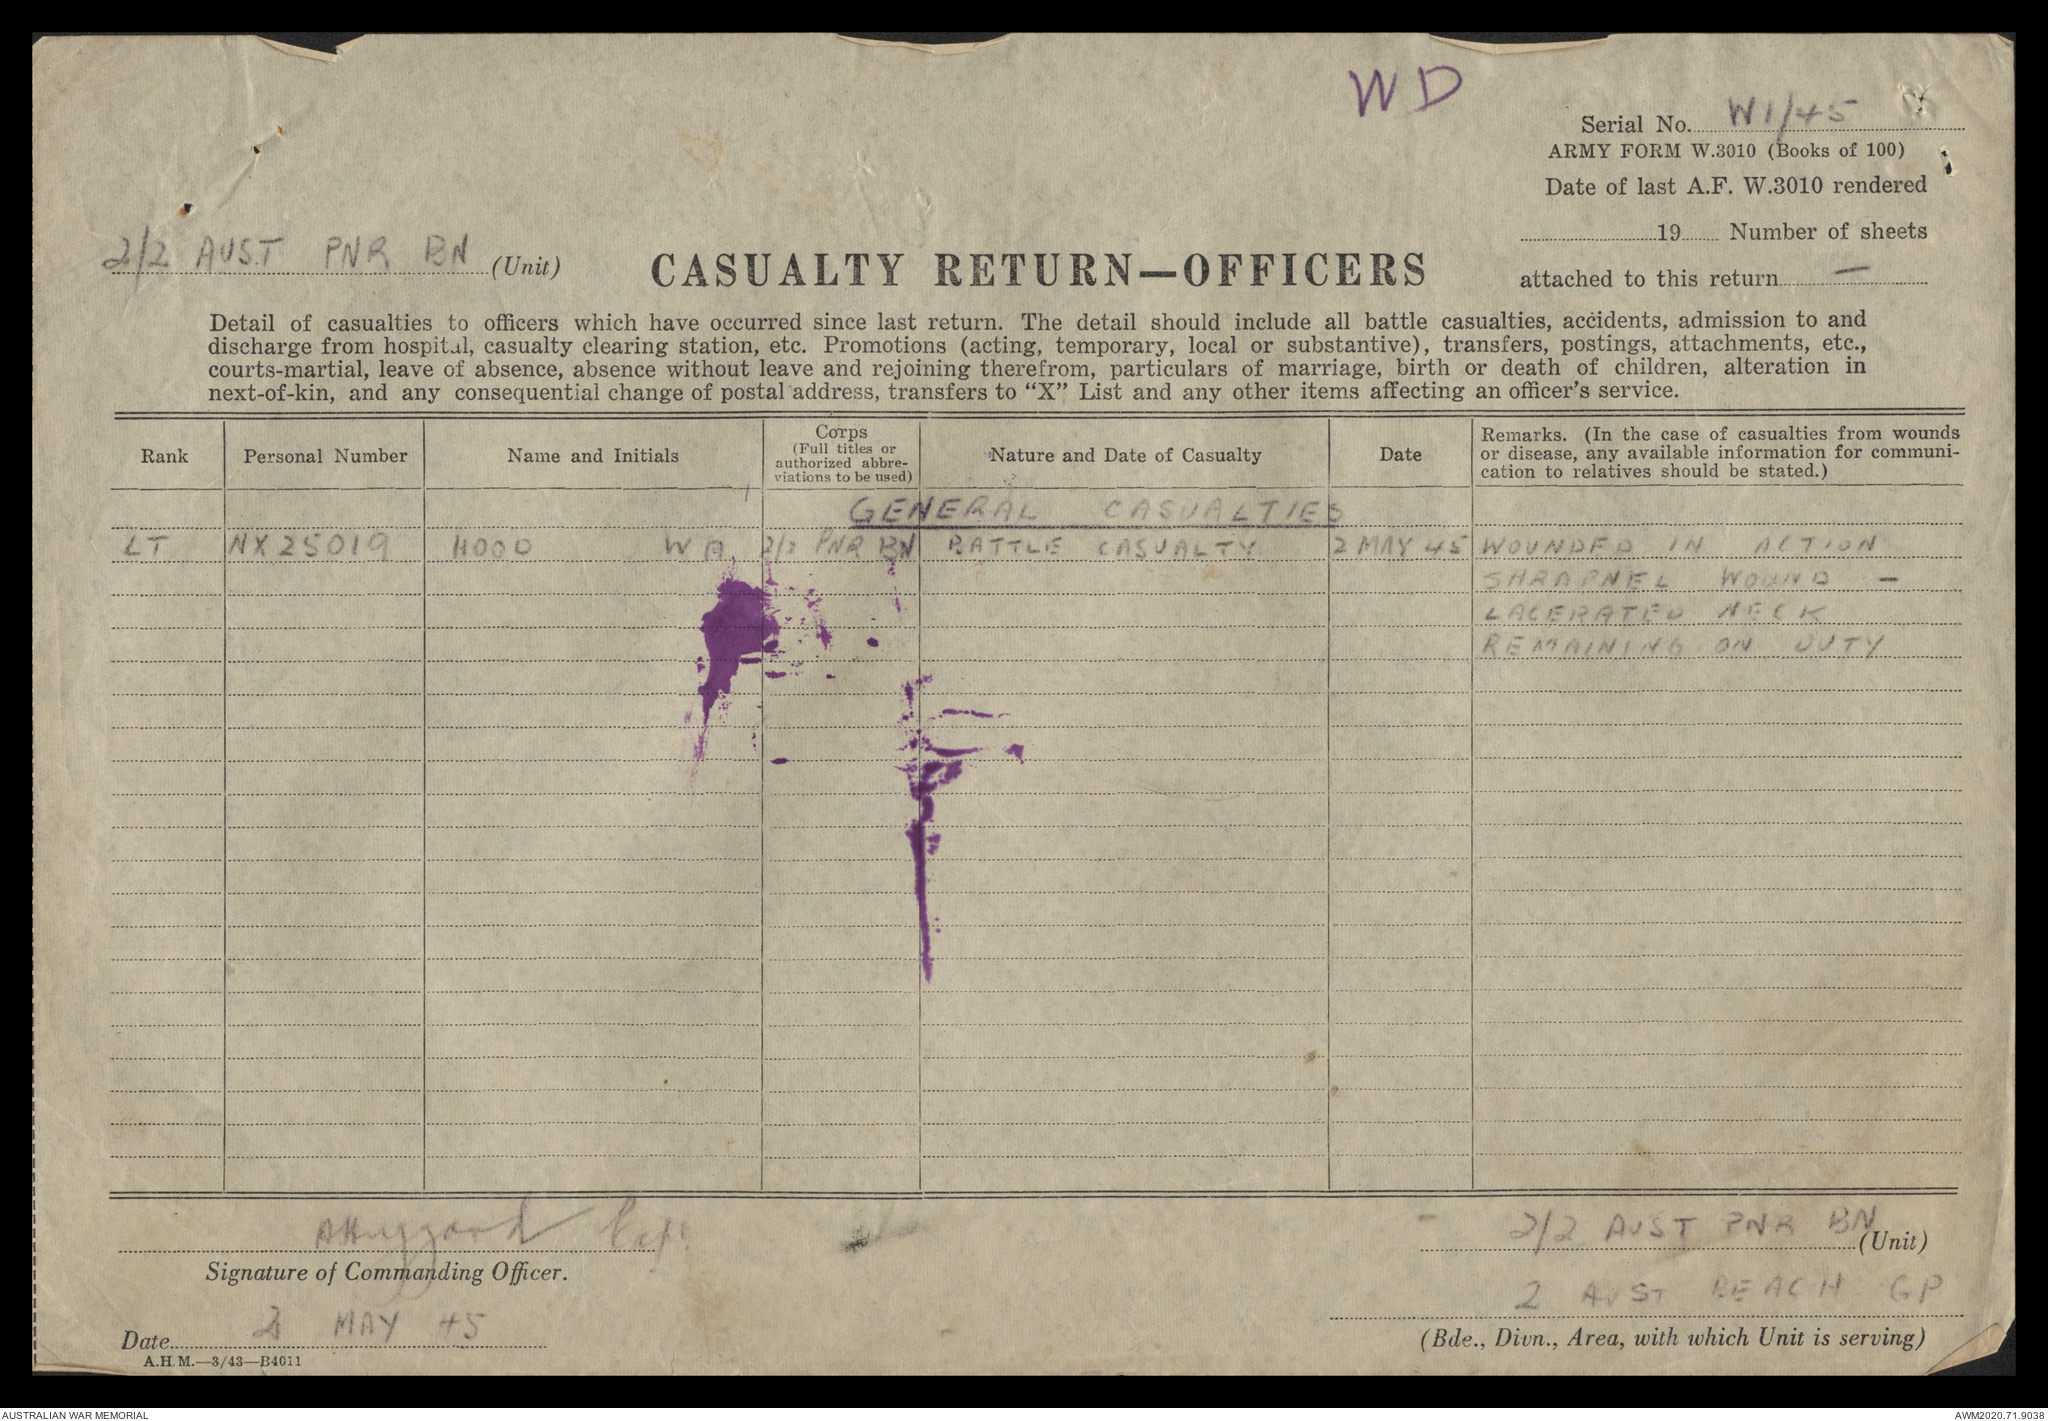 WD
Serial No. W1/45
ARMY FORM W.3010 (Books of 100)
Date of last A.F. W.3010 rendered
19 Number of sheets
attached to this return —
2/2 AUST PNR BN (Unit)
CASUALTY RETURN—OFFICERS
Detail of casualties to officers which have occurred since last return. The detail should include all battle casualties, accidents, admission to and
discharge from hospital, casualty clearing station, etc. Promotions (acting, temporary, local or substantive), transfers, postings, attachments, etc.,
courts-martial, leave of absence, absence without leave and rejoining therefrom, particulars of marriage, birth or death of children, alteration in
next-of-kin, and any consequential change of postal address, transfers to “X” List and any other items affecting an officer's service.
Rank
Personal Number
Name and Initials
Corps
(Full titles or
authorized abbre-
viations to be used)
Nature and Date of Casualty
Date
Remarks. (In the case of casualties from wounds
or disease, any available information for communi-
cation to relatives should be stated.)
GENERAL CASUALTIES
LT NX25019 HOOD WA 2/2 PNR BN BATTLE CASUALTY 2 MAY 45 WOUNDED IN ACTION
SHRAPNEL WOUND —
LACERATED NECK
REMAINING ON DUTY
Capt
Signature of Commanding Officer.
2/2 AUST PNR BN (Unit)
2 AUST BEACH GP
(Bde., Divn., Area, with which Unit is serving)
Date 2 MAY 45
A.H.M.—3/43—B4011
AUSTRALIAN WAR MEMORIAL
AWM2020.71.9038